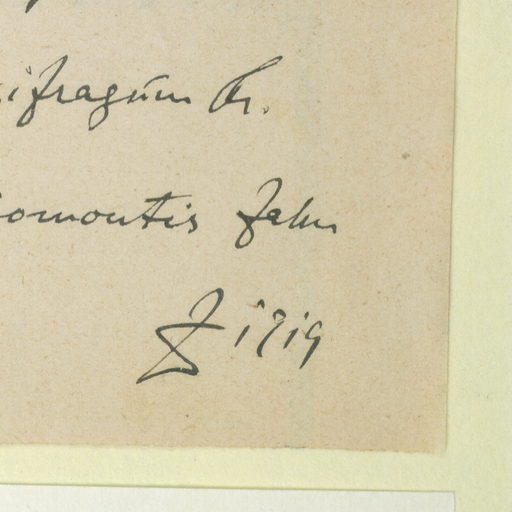 ifragum Fr.
omontis Zahn
Z 1919